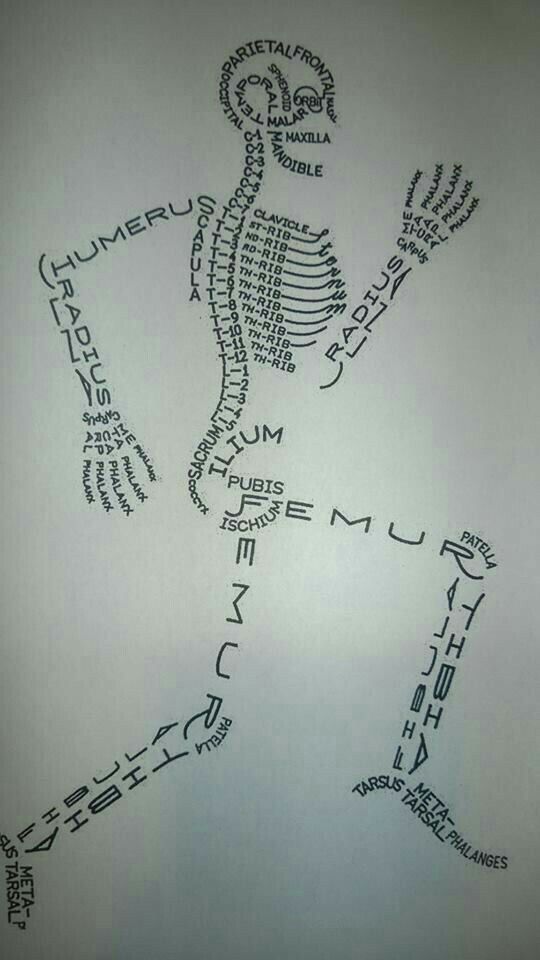 PARIETAL
FRONTAL
NASAL
OCCIPITAL
TEMPORAL
SPHENOID
ORBIT
MALAR
MAXILLA
MANDIBLE
C1
C2
C3
C4
C5
C6
C7
CLAVICLE
SCAPULA
HUMERUS
RADIUS
ULNA
CARPUS
METACARPAL
PHALANX
PHALANX
PHALANX
PHALANX
PHALANX
T-1
ST-RIB
T-2
ND-RIB
T-3
RD-RIB
T-4
TH-RIB
T-5
TH-RIB
T-6
TH-RIB
T-7
TH-RIB
T-8
TH-RIB
T-9
TH-RIB
T-10
TH-RIB
T-11
TH-RIB
T-12
TH-RIB
Sternum
RADIUS
ULNA
CARPUS
METACARPAL
PHALANX
PHALANX
PHALANX
PHALANX
PHALANX
L-1
L-2
L-3
L-4
L-5
SACRUM
COCCYX
ILIUM
PUBIS
ISCHIUM
FEMUR
PATELLA
TIBIA
FIBULA
TARSUS
META-
TARSAL
PHALANGES
FEMUR
PATELLA
TIBIA
FIBULA
SUS
META-
TARSAL
P